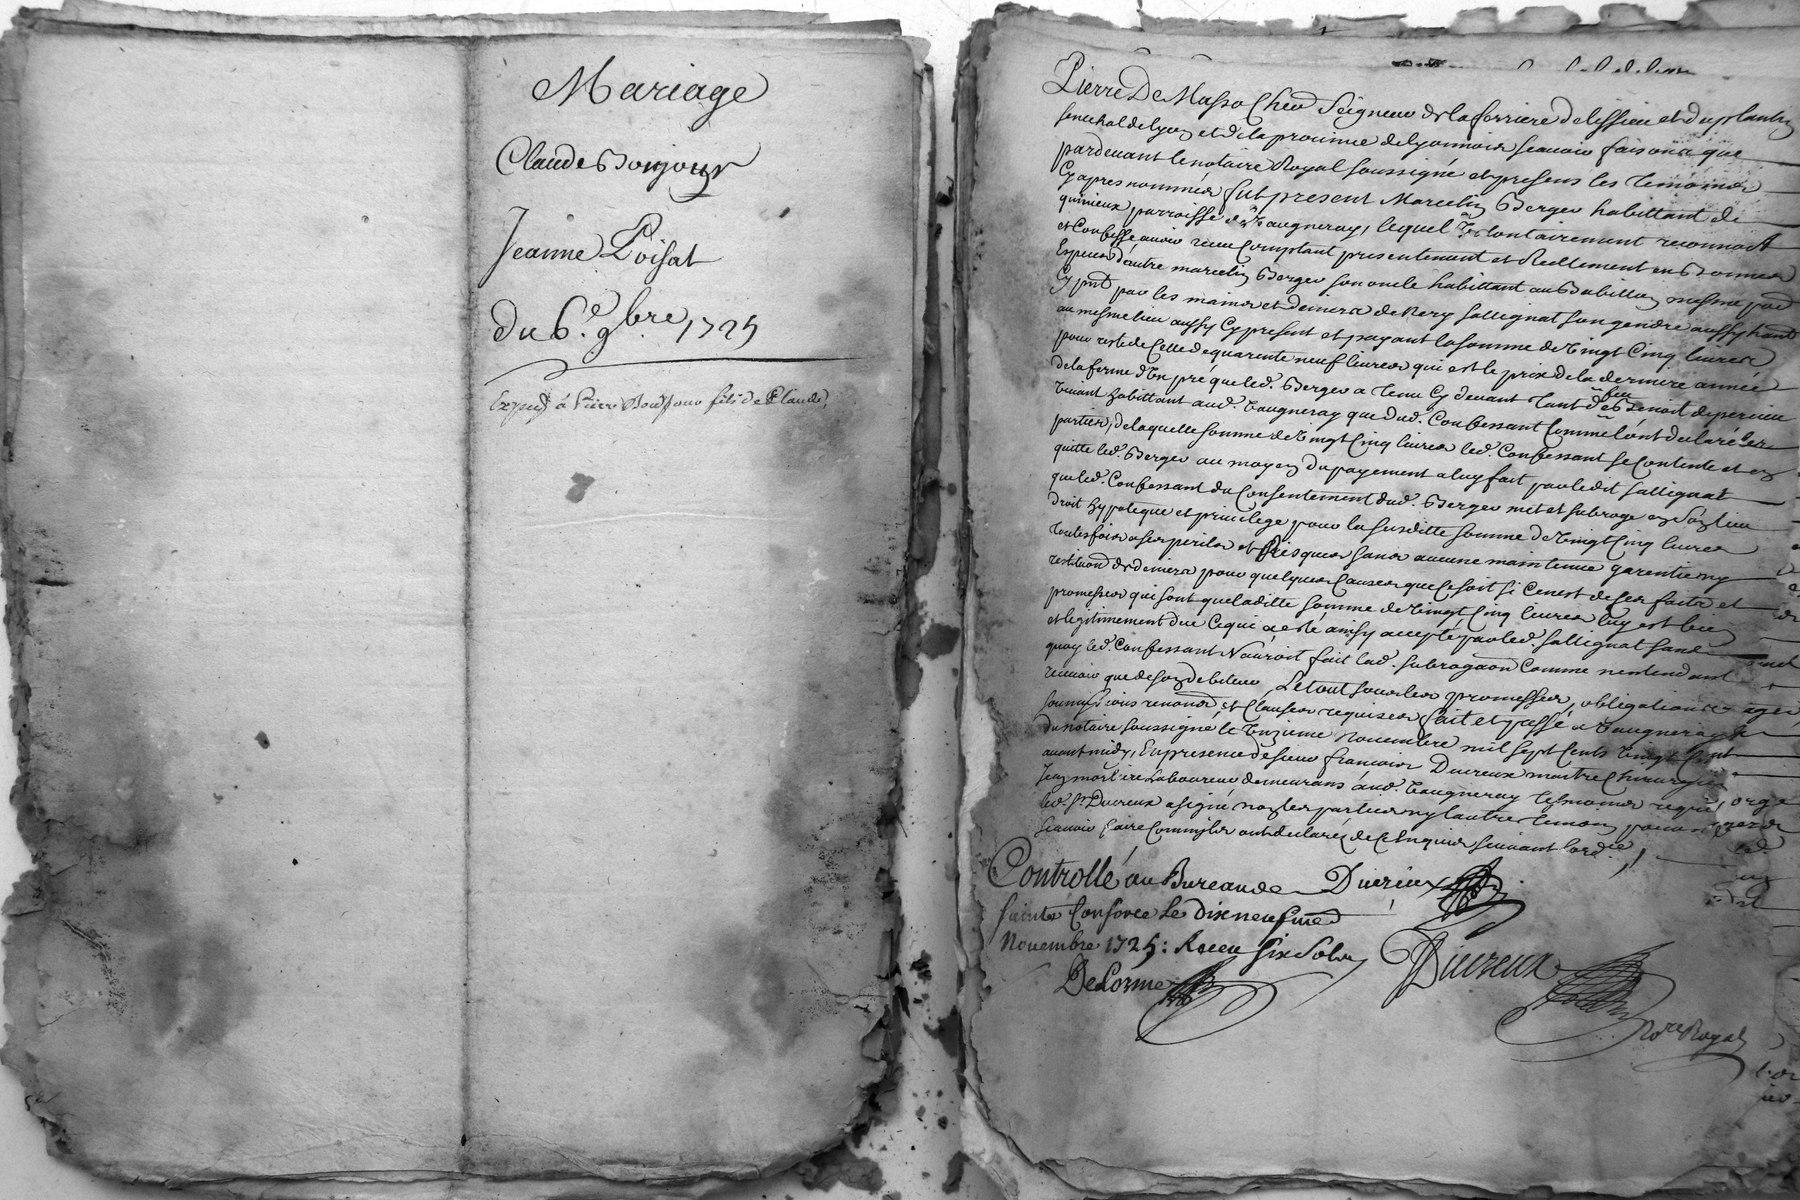 Mariage
Claude Bonjour
Jeanne Poisat
du 6.e 9bre 1725
Exped à Pierre Bonjour fils de Claude
Pierre De Masso Chevr Seigneur de la ferriere de lissieu et du plantin
senechal de lyon et de la province de lyonnois scavoir faisons que
pardevant le notaire Royal soussigné et presens les temoins
Cy apres nommés fut present Marcelin Berger habittant de
quinieux parroisse de Vaugneray, lequel Volontairement reconnoit
et Confesse avoir receu Comptant presentement et Reellement en Bonnes
Especes d'autre marcelin Berger son oncle habittant au mesme
Cy pnt par les mains et deniers de Rery sallignat son gendre aussy habitt
au mesme lieu aussy Cy present et payant la somme de Vingt Cinq livres
pour reste de Celle de quarente neuf livres qui est le prix de la derniere année
de la ferme d'Un pré que led. Berger a tenu Cy devant tant de feu Benoit
Vivant habittant aud. Vaugneray que dud. Confessant Comme l'ont declaré les
parties, de laquelle somme de Vingt Cinq livres led. Confessant se Contente et en
quitte led. Berger au moyen du payement a luy fait par ledit sallignat
que led. Confessant du Consentement dud. Berger met et subroge en son lieu
droit hypoteque et privilege pour la susditte somme de Vingt Cinq livres
toutesfois a ses perils et Risques sans aucune maintenue garentie ny
restituon de deniers pour quelques Causes que Ce soit si Cenest de ses faits et
promesses qui sont que laditte somme de Vingt Cinq livres luy est bien
et legitimement due Ce qui a esté ainsy accepté par led. sallignat sans
quoy led. Confessant N'auroit fait lad. subrogaon Comme n'entendant
recevoir que de son debiteur, Le tout sous les promesses, obligations
soumissions renonons et Clauses requises fait et passé a Vaugneray
du notaire soussigné le Onzieme Novembre mil sept Cents Vingt Cinq
avant midy, En presence de sieur francois Ducreux maitre Chirurgien
Jean Laboureur demeurans aud. Vaugneray tesmoins requis,
led. Sr Ducreux a signé non les parties ny l'autre temoin pour ne
scavoir faire Commilés ont declaré de Ce Enquis suivant l'ordce
Controllé au Bureau de Ducreux
sainte Consorce Le dixneufme
Novembre 1725: Receu six Sols
DeLorme Ducreux
Nore Royal